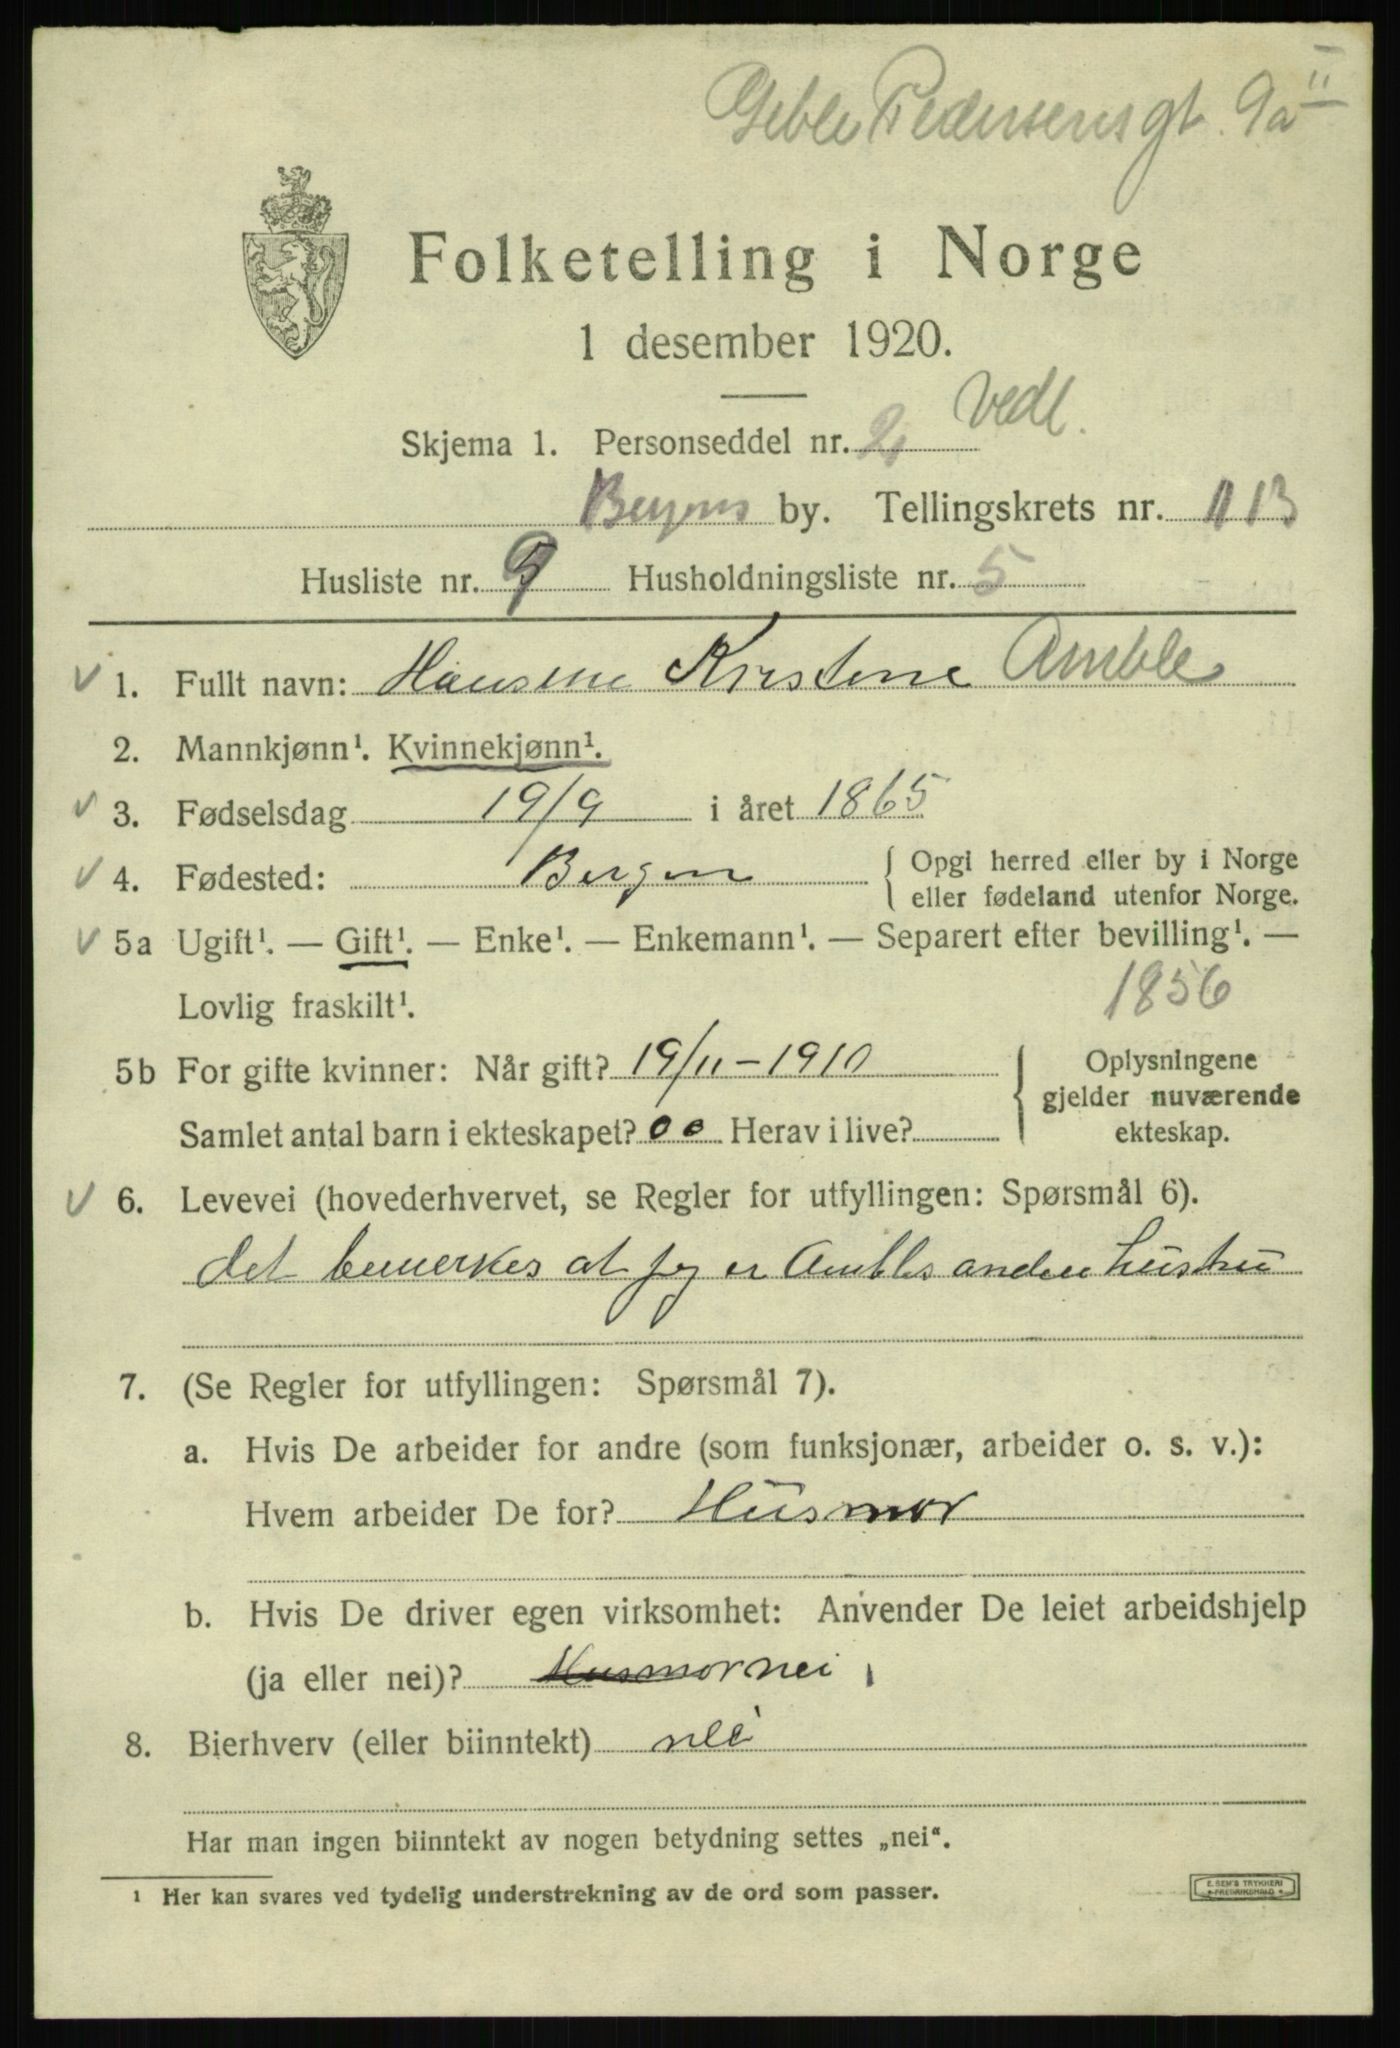 Geble Pedersens gt. 9a II
Folketelling i Norge
1 desember 1920.
Skjema 1. Personseddel nr. 2 Vedl.
Bergens by. Tellingskrets nr. 113
Husliste nr. 9 Husholdningsliste nr. 5
1. Fullt navn: Hansine Kristine Amble
2. Mannkjønn¹. Kvinnekjønn¹.
3. Fødselsdag 19/9 i året 1865
4. Fødested: Bergen { Opgi herred eller by i Norge
eller fødeland utenfor Norge.
5a Ugift¹. — Gift¹. — Enke¹. — Enkemann¹. — Separert efter bevilling¹. —
Lovlig fraskilt¹. 1856
5b For gifte kvinner: Når gift? 19/11 – 1910
Samlet antal barn i ekteskapet? 00 Herav i live?
{ Oplysningene
gjelder nuværende
ekteskap.
6. Levevei (hovederhvervet, se Regler for utfyllingen: Spørsmål 6).
det bemerkes at jeg er Ambles anden hustru
7. (Se Regler for utfyllingen: Spørsmål 7).
a. Hvis De arbeider for andre (som funksjonær, arbeider o. s. v.):
Hvem arbeider De for? Husmor
b. Hvis De driver egen virksomhet: Anvender De leiet arbeidshjelp
(ja eller nei)? Husmor nei
8. Bierhverv (eller biinntekt) nei
Har man ingen biinntekt av nogen betydning settes „nei“.
¹ Her kan svares ved tydelig understrekning av de ord som passer.
E. SEM'S TRYKKERI
FREDRIKSHALD